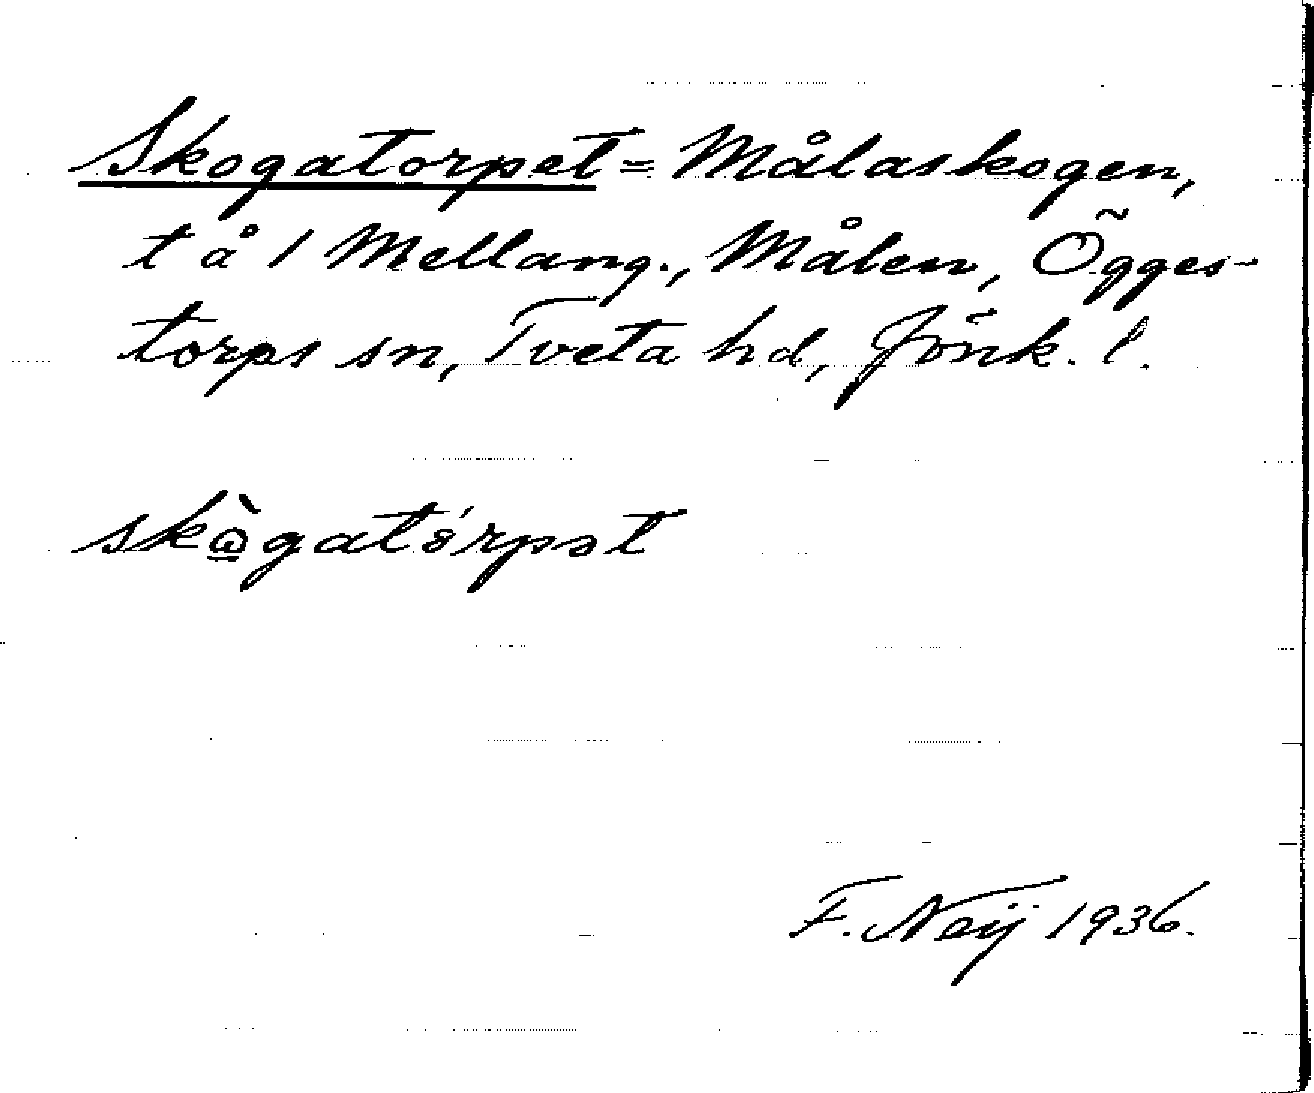 Skogatorpet = Målaskogen,
t å 1 Mellang., Målen, Ögges-
torps sn, Tveta hd, Jönk. l.
skògatórpət
F. Neij 1936.